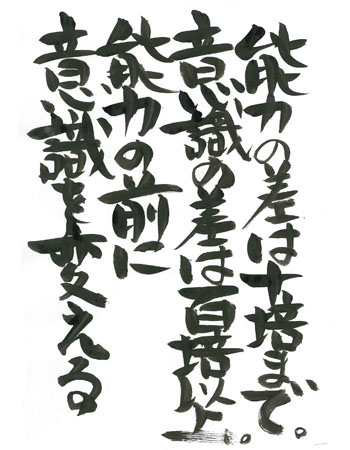 能力の差は十倍まで。
意識の差は百倍以上。
能力の前に
意識を変える